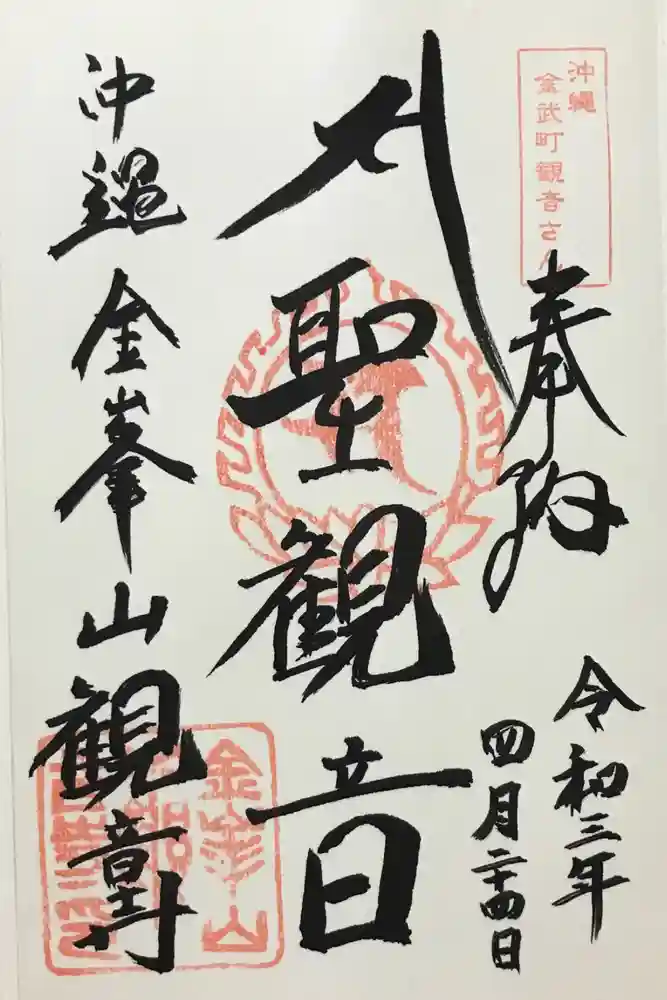 沖縄
金武町観音さん
奉拝
令和三年
四月二十四日
聖観音
沖縄 金峯山 観音寺
金峯山